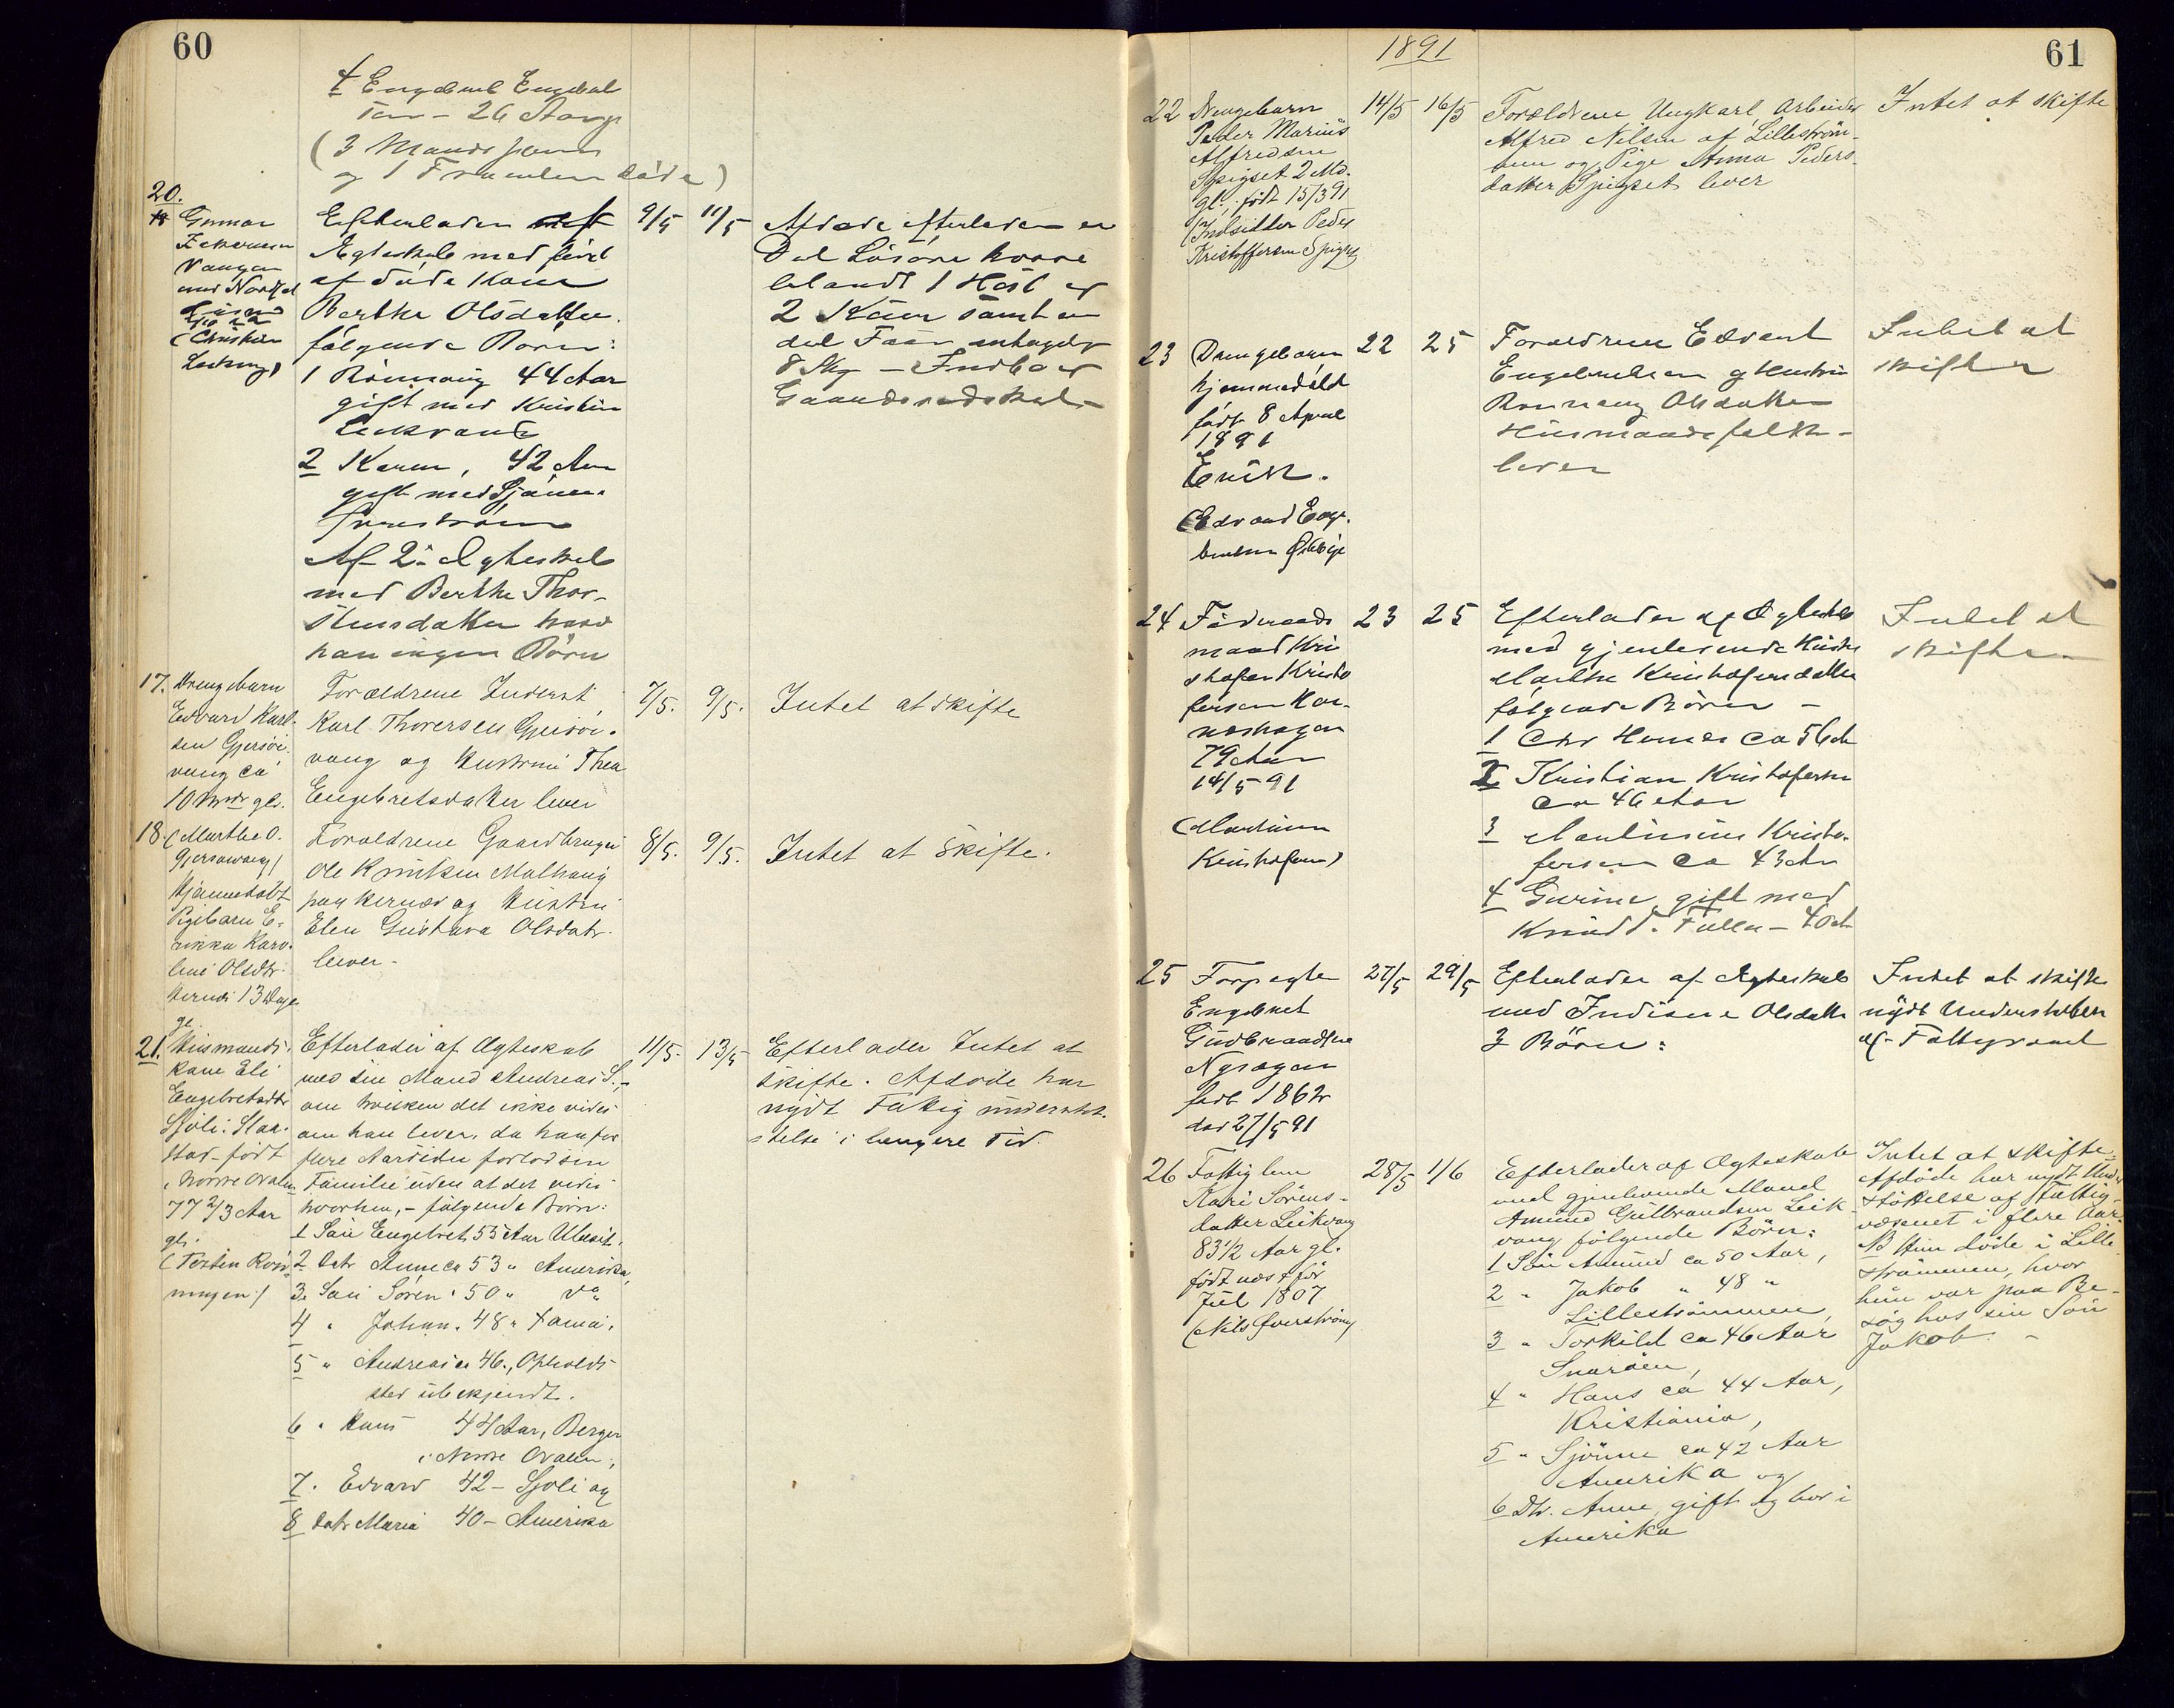 60
4 Engebret Engebret
sen - 26 Aar
(3 Mands
og 1 døde)
20.
Gunnar
Vangen
(Christian
Efterlader
Ægteskab med først
afdøde Kone
Berthe Olsdatter
følgende Børn:
1 Rønnaug 44 Aar
gift med Kristian
Leikvang
2 Karen, 42 Aar
gift med
Af 2det Ægteskab
med Berthe Thor-
stensdatter havde
han ingen Børn
9/5
11/5
Afdøde efterlader en
Del Løsøre hvori
blandt 1 Hest og
2 Køer samt en
del Faar
17. Drengebarn
Edvard Karl-
sen Gjersøi-
vang ca
10 Mdr gl.
Forældrene Inderst
Karl Thoresen Gjersøi-
vang og Hustru Thea
Engebretsdatter lever
7/5.
9/5.
Intet at skifte
18. (Marthe O.
Gjersøivang)
Hjemmedøbt
Pigebarn E-
rikka Karo-
line Olsdtr.
13 Dage
gl.
Forældrene Gaardbruger
Ole Knutsen Malhaug
paa og Hustru
Elen Gustava Olsdatr.
lever -
8/5.
9/5.
Intet at skifte.
21. Husmands-
kone Eli
Engebretsdtr
Sjoli
født
i Nordre Odalen
77 2/3 Aar
gl.
(Torsten Røn-
ningen)
Efterlader af Ægteskab
med sin Mand Andreas S.,
om hvilken det ikke vides
om han lever, da han for
flere Aar siden forlod sin
Familie uden at det vides
hvorhen, - følgende Børn:
1 Søn Engebret 55 Aar Ullensk.
2 Datr Anne ca 53 " Amerika,
3. Søn Søren " 50 " do
4 " Johan " 48 "
5 " Andreas ca 46., Opholds-
sted ubekjendt.
6 " Hans 44 Aar, Berger
i Nordre Odalen,
7. Edvard 42 - Sjoli og
8 Datr Maria 40 - Amerika
11/5.
13/5
Efterlader Intet at
skifte. Afdøde har
nydt Fattigunderstøt-
telse i længere Tid.
1891
61
22 Drengebarn
Peder Marius
Alfredsen
Spigset 2 Md.
gl., født 15/3 91
(Indsidder Peder
Kristoffersen Spigset)
14/5
16/5
Forældrene Ungkarl, Arbeider
Alfred Nilsen af Lillestrøm-
men og Pige Anna Peders-
datter Spigset lever
Intet at skifte
23 Drengebarn
hjemmedøbt
født 8 April
1891
Erik.
(Edvard Enge-
bretsen
22
25
Forældrene Edvart
Engebretsen og Hustru
Rønnaug Olsdatter
Husmandsfolk -
lever
Intet at
skifte
24 Føderaads
mand Kri
stofer Kristo
fersen Kor-
neshagen
79 Aar
14/5 91
(Martinius
Kristofersen)
23
25
Efterlader af Ægteskab
med gjenlevende Hustru
Marthe Kristofersdatter
følgende Børn -
1 Chr ca 56 Aar
2 Kristian Kristofersen
ca 46 Aar
3 Martinius Kristo-
fersen ca 43 Aar
4 Gurine gift med
Knud - 40 Aar
Intet at
skifte
25 Forpagter
Engebret
Gudbrandsen
født 1862
død 27/5 91
27/5
29/5
Efterlader af Ægteskab
med Indiane Olsdatter
3 Børn:
Intet at skifte
nydt Understøttelse
af Fattigvæsenet
26 Fattiglem
Kari Sørens-
datter Leikvang
83 1/2 Aar gl.
født næst før
Jul 1807
(Nils
28/5
1/6
Efterlader af Ægteskab
med gjenlevende Mand
Amund Gulbrandsen Leik-
vang følgende Børn:
1 Søn Amund ca 50 Aar,
2 " Jakob " 48 "
Lillestrømmen,
3 " Torkild ca 46 Aar
Snarøen,
4 " Hans ca 44 Aar,
Kristiania,
5 " Sjønne ca 42 Aar
Amerika og
6 Dtr. Anne, gift og bor i
Amerika
Intet at skifte,
Afdøde har nydt Under-
støttelse af Fattig-
væsenet i flere Aar.
NB Hun døde i Lille-
strømmen, hvor
hun var paa Be-
søg hos sin Søn
Jakob. -